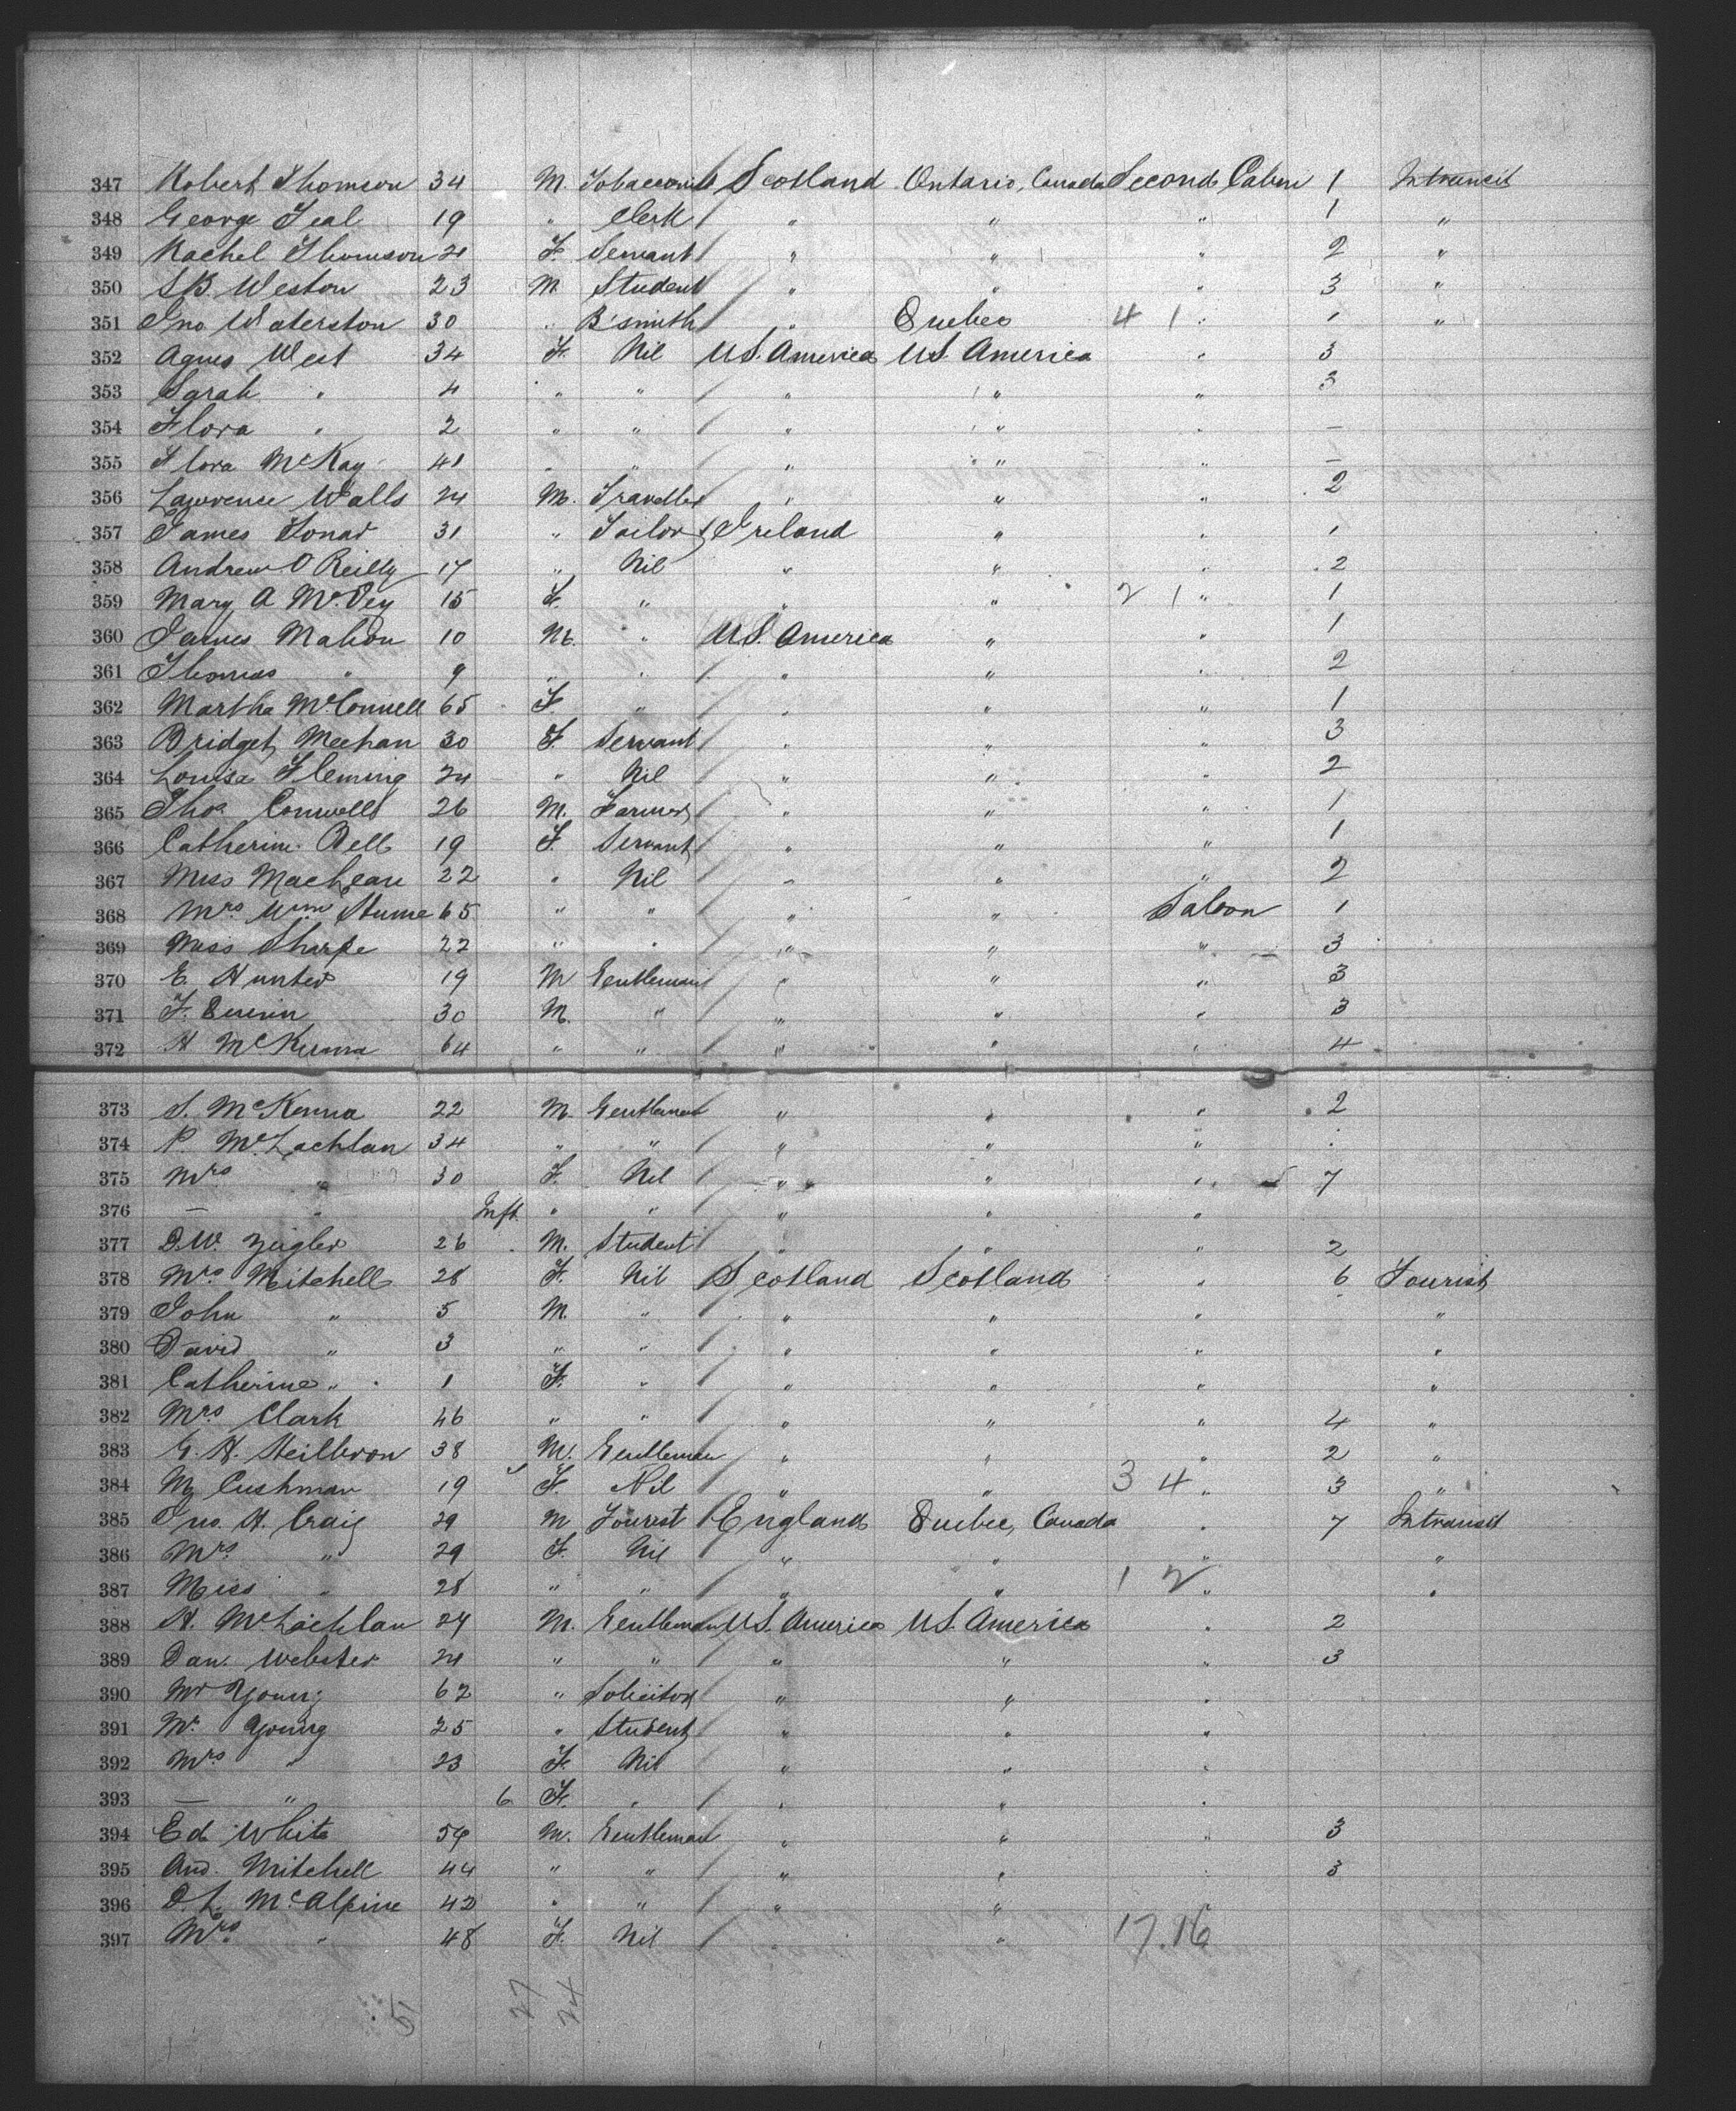 347 Robert Thomson 34 M. Tobacconist Scotland Ontario, Canada Second Cabin 1 Intransit
348 George Teal 19 " Clerk " " " 1 "
349 Rachel Thomson 21 F. Servant " " " 2 "
350 S.B. Weston 23 M. Student " " " 3 "
351 Jno Waterston 30 " B'smith " Quebec 4 1 " 1 "
352 Agnes West 34 F. Nil U.S. America U.S. America " 3
353 Sarah " 4 " " " " " 3
354 Flora " 2 " " " " " —
355 Flora McKay 41 " " " " " —
356 Lawrence Walls 24 M. Traveller " " " 2
357 James 31 " Tailor Ireland " " 1
358 Andrew O'Reilly 17 " Nil " " " 2
359 Mary A 15 F. " " " 2 1 " 1
360 James Mahon 10 M. " U.S. America " " 1
361 Thomas " 9 " " " " " 2
362 Martha McConnell 65 F. " " " " 1
363 Bridget Meehan 30 F. Servant " " " 3
364 Louisa Fleming 24 " Nil " " " 2
365 Thos Connells 26 M. Farmer " " " 1
366 Catherine Bell 19 F. Servant " " " 1
367 Miss MacLean 22 " Nil " " " 2
368 Mrs Wm 65 " " " " Saloon 1
369 Miss Sharpe 22 " " " " " 3
370 E. Hunter 19 M Gentleman " " " 3
371 F. 30 M. " " " " 3
372 H McKenna 64 " " " " " 4
373 S. McKenna 22 M. Gentleman " " " 2
374 P. McLachlan 34 " " " " "
375 Mrs " 30 F. Nil " " " 7
376 — " Inft. " " " " "
377 D.W. Zeigler 26 M. Student " " " 2
378 Mrs Mitchell 28 F. Nil Scotland Scotland " 6 Tourist
379 John " 5 M. " " " " "
380 David " 3 " " " " " "
381 Catherine " 1 F. " " " " "
382 Mrs Clark 46 " " " " " 4 "
383 G. H. Heilbron 38 M. Gentleman " " " 2 "
384 M Cushman 19 F. Nil " " 3 4 " 3 "
385 Jno. H. Craig 29 M Tourist England Quebec, Canada " 7 Intransit
386 Mrs " 29 F. Nil " " " "
387 Miss " 28 " " " " 1 2 " "
388 H. McLachlan 24 M. Gentleman U.S. America U.S. America " 2
389 Dan. Webster 24 " " " " " 3
390 Mr Young 62 " Solicitor " " "
391 Mr. Young 25 " Student " " "
392 Mrs " 23 F. Nil " " "
393 — " 6 F. " " " "
394 Ed White 54 M. Gentleman " " " 3
395 And. Mitchell 44 " " " " " 3
396 D. L. McAlpine 42 " " " " "
397 Mrs " 48 F. Nil " 17.16
51 27 24